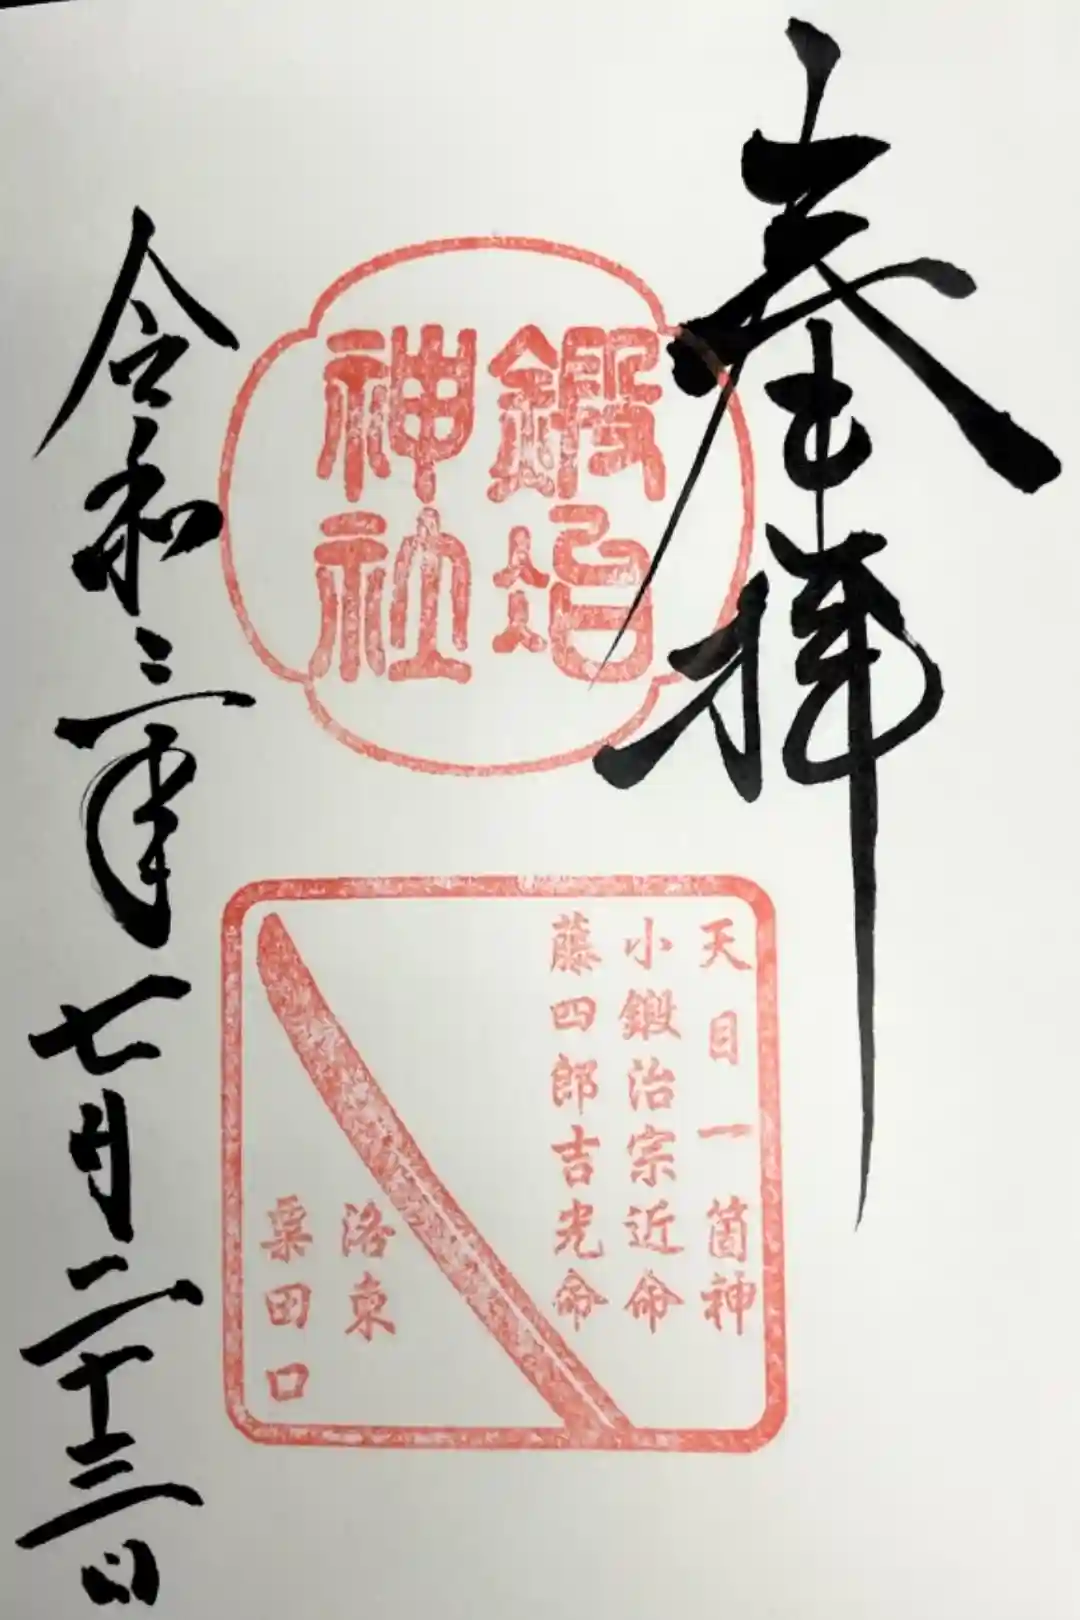 奉拝
鍛冶
神社
天目一箇神
小鍛治宗近命
藤四郎吉光命
洛東
粟田口
令和三年七月二十三日